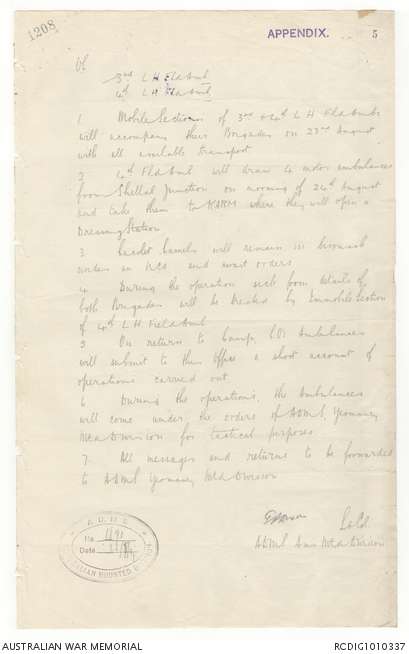 1208
APPENDIX. 5
3rd L H Fld Amb
4th L H Fld Amb
1 Mobile Sections of 3rd & 4th L H Fld Ambs
will accompany their Brigades on 23rd August
with all available transport
2 4th Fld Amb will draw 4 motor ambulances
from Shellal Junction on morning of 24th August
and take them to KARM where they will open a
Dressing Station
3 camels will remain in
under an NCO and await orders
4 During the operation sick from details of
both Brigades will be treated by Immobile Section
of 4th L H Field Amb
5 On return to Camp, CO's Ambulances
will submit to this Office a short account of
operations carried out
6 During the operations, the Ambulances
will come under the orders of ADMS Yeomanry
Mtd Division for tactical purposes
7 All messages and returns to be forwarded
to ADMS Yeomanry Mtd Division
Col
ADMS Aus Mtd Division
A.D.M.S.
No
Date
AUSTRALIAN MOUNTED DIVISION
AUSTRALIAN WAR MEMORIAL
RCDIG1010337